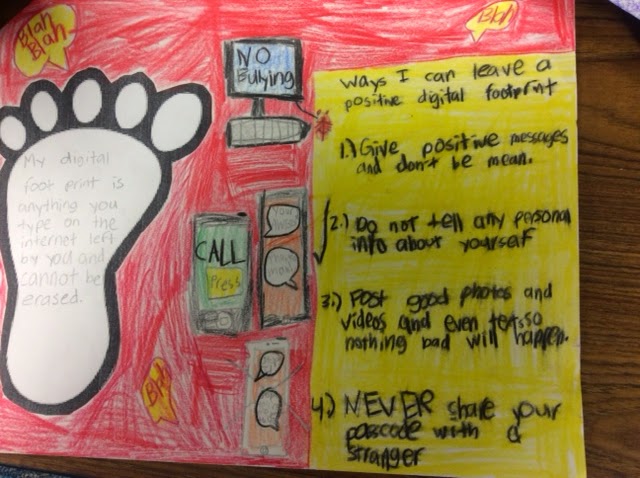 Blah
Blah
Blah
NO
Bullying
My digital
foot print is
anything you
type on the
internet left
by you and
cannot be
erased.
CALL
Press
Blah
Ways I can leave a
positive digital footprint
1.) Give positive messages
and don't be mean.
2.) Do not tell any personal
info about yourself
3.) Post good photos and
videos and even texts so
nothing bad will happen.
4.) NEVER share your
passcode with a
stranger